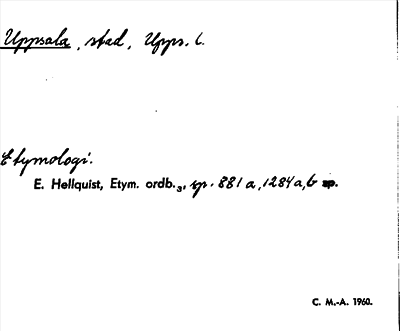 Uppsala, stad, Upps. l.
Etymologi.
E. Hellquist, Etym. ordb.₃, sp. 881 a, 1284 a, b sp.
C. M.-A. 1960.